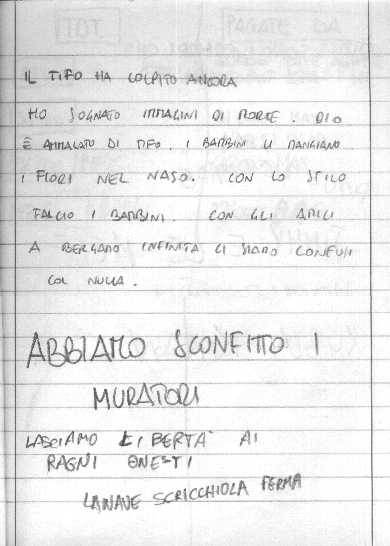 IL TIFO HA COLPITO ANCORA
HO SOGNATO IMMAGINI DI MORTE. DIO
È AMMALATO DI TIFO. I BAMBINI LI MANGIANO.
I FIORI NEL NASO. CON LO STILO
FALCIO I BAMBINI. CON GLI AMICI
A BERGAMO INFINITA CI SIAMO CONFUSI
COL NULLA.
ABBIAMO SCONFITTO I
MURATORI
LASCIAMO LIBERTÀ AI
RAGNI ONESTI
LA NAVE SCRICCHIOLA FERMA